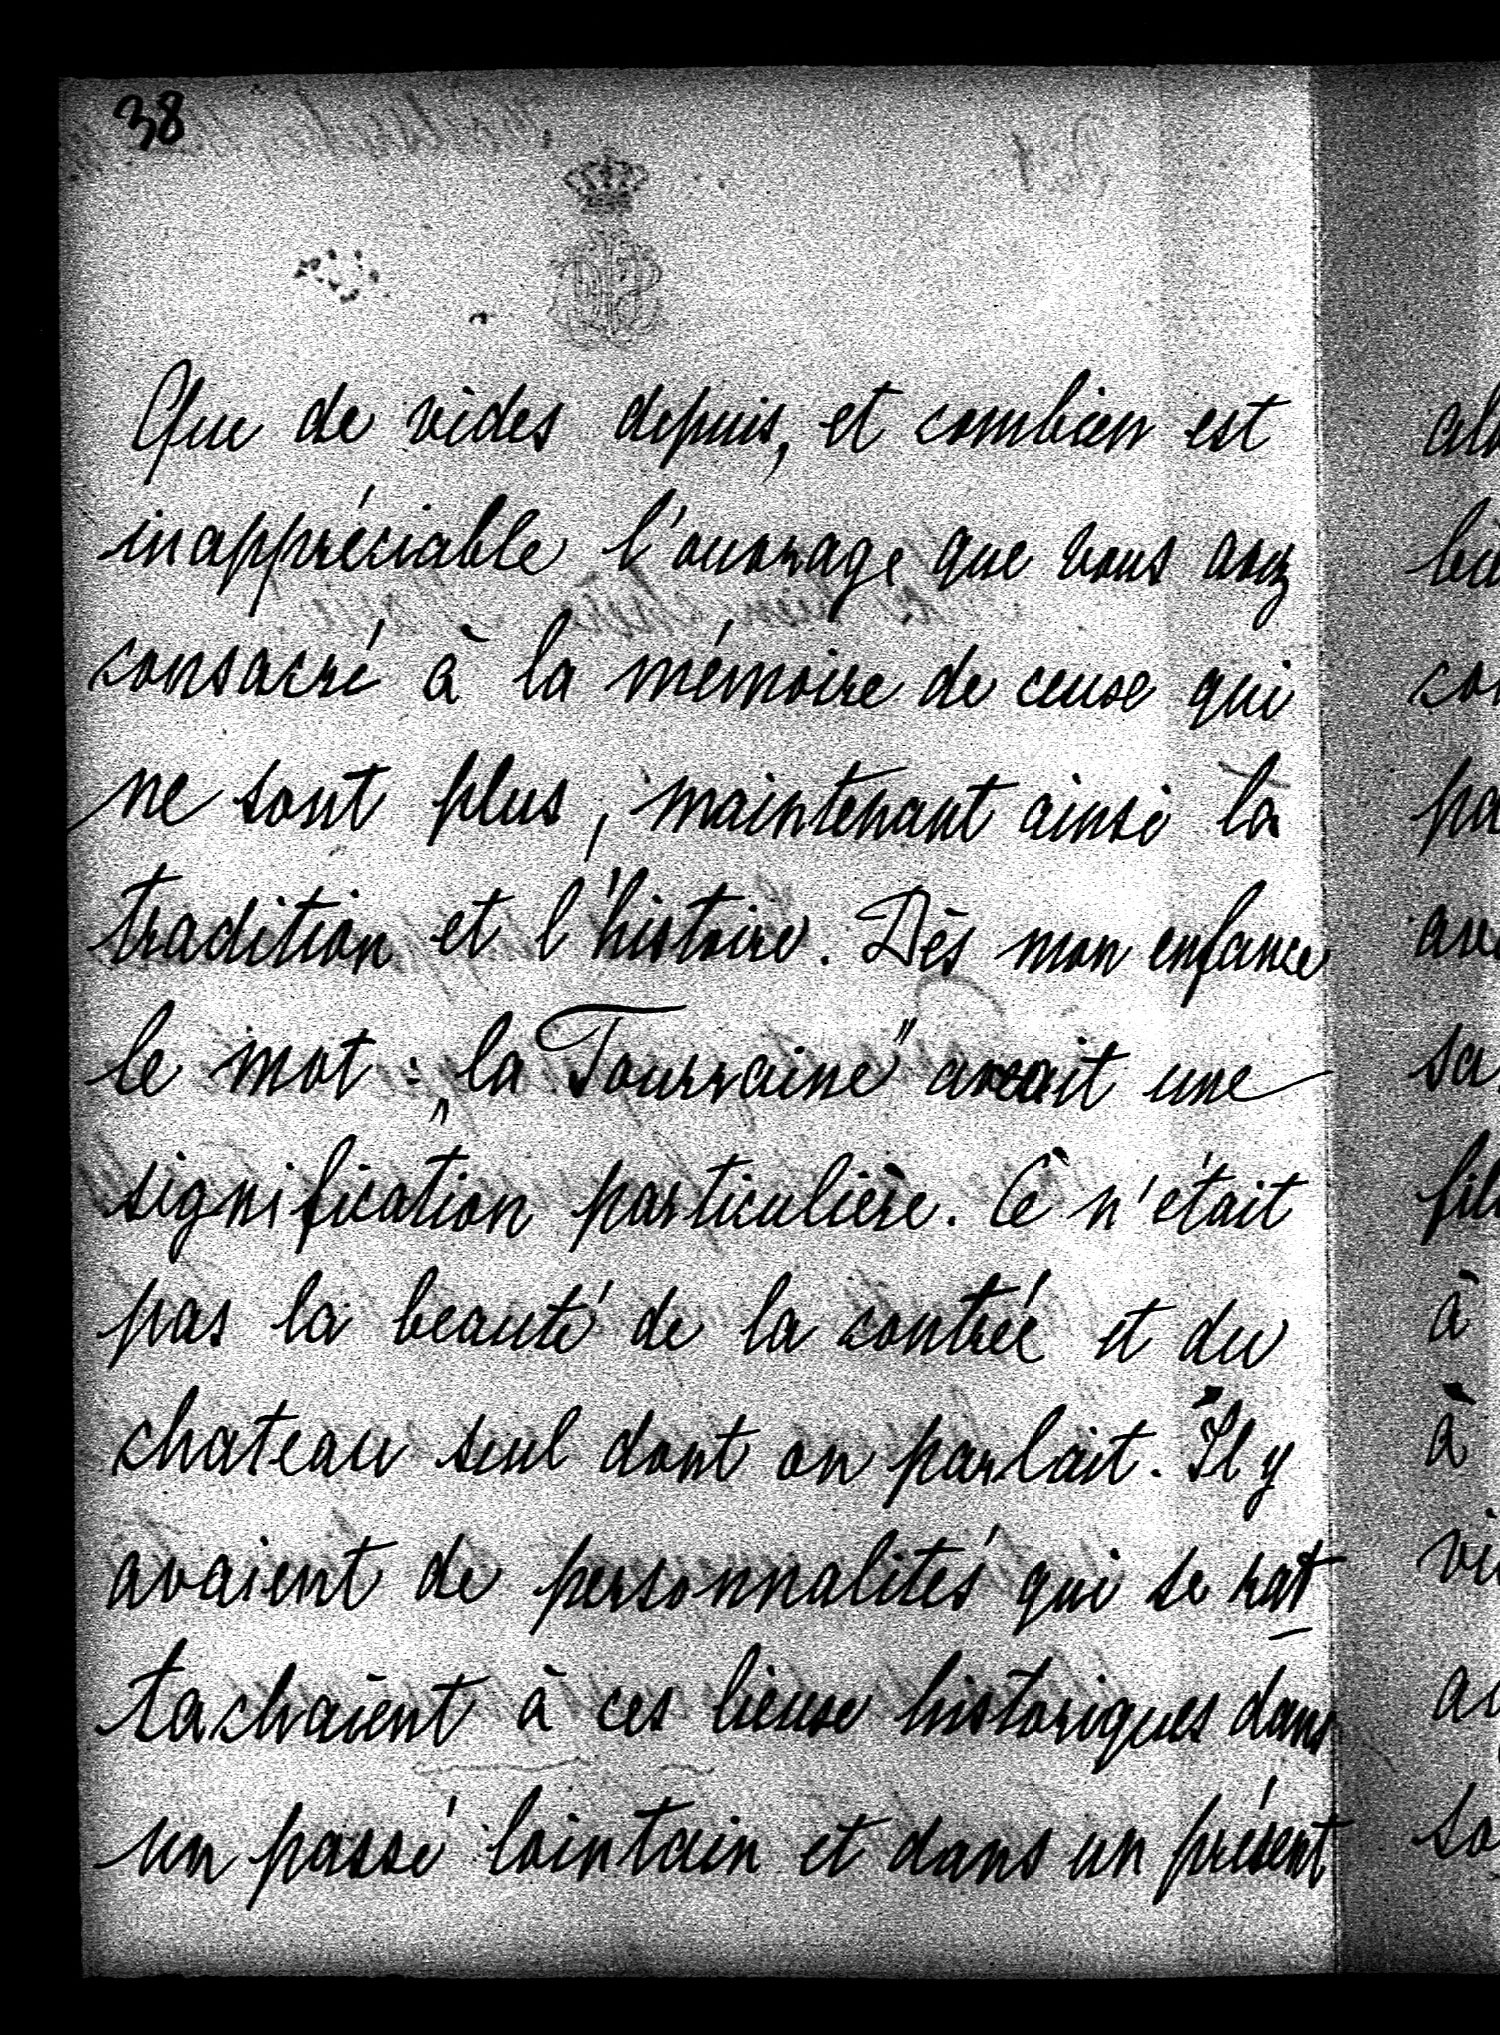 38
Que de vides depuis, et combien est
inappréciable l'ouvrage que vous avez
consacré à la mémoire de ceux qui
ne sont plus, maintenant ainsi la
tradition et l'histoire. Dès mon enfance
le mot : „la Tourraine" avait une
signification particulière. Ce n'était
pas la beauté de la contrée et du
chateau seul dont on parlait. Il y
avaient de personnalités qui se rat
tachaient à ces lieux historiques dans
un passé lointain et dans un présent